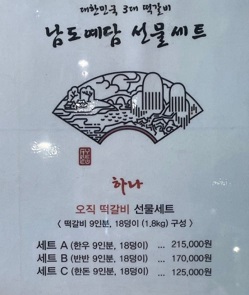 대한민국 3대 떡갈비
남도예담 선물세트
하나
오직 떡갈비 선물세트
〈 떡갈비 9인분, 18덩이 (1,8kg) 구성 〉
세트 A (한우 9인분, 18덩이) ... 215,000원
세트 B (반반 9인분, 18덩이) ... 170,000원
세트 C (한돈 9인분, 18덩이) ... 125,000원